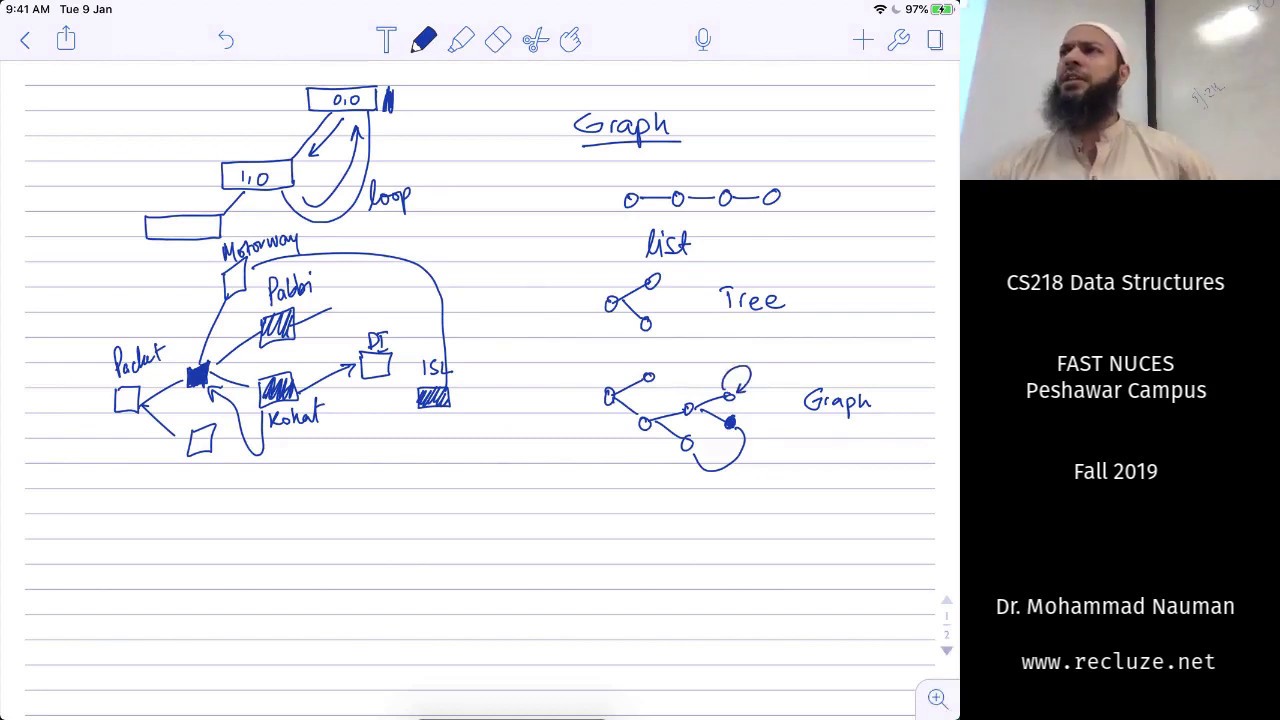 9:41 AM Tue 9 Jan
97%
0,0
1,0
loop
Graph
list
Tree
Graph
Motorway
Pabbi
Packet
DI
ISL
Kohat
1
2
CS218 Data Structures
FAST NUCES
Peshawar Campus
Fall 2019
Dr. Mohammad Nauman
www.recluze.net